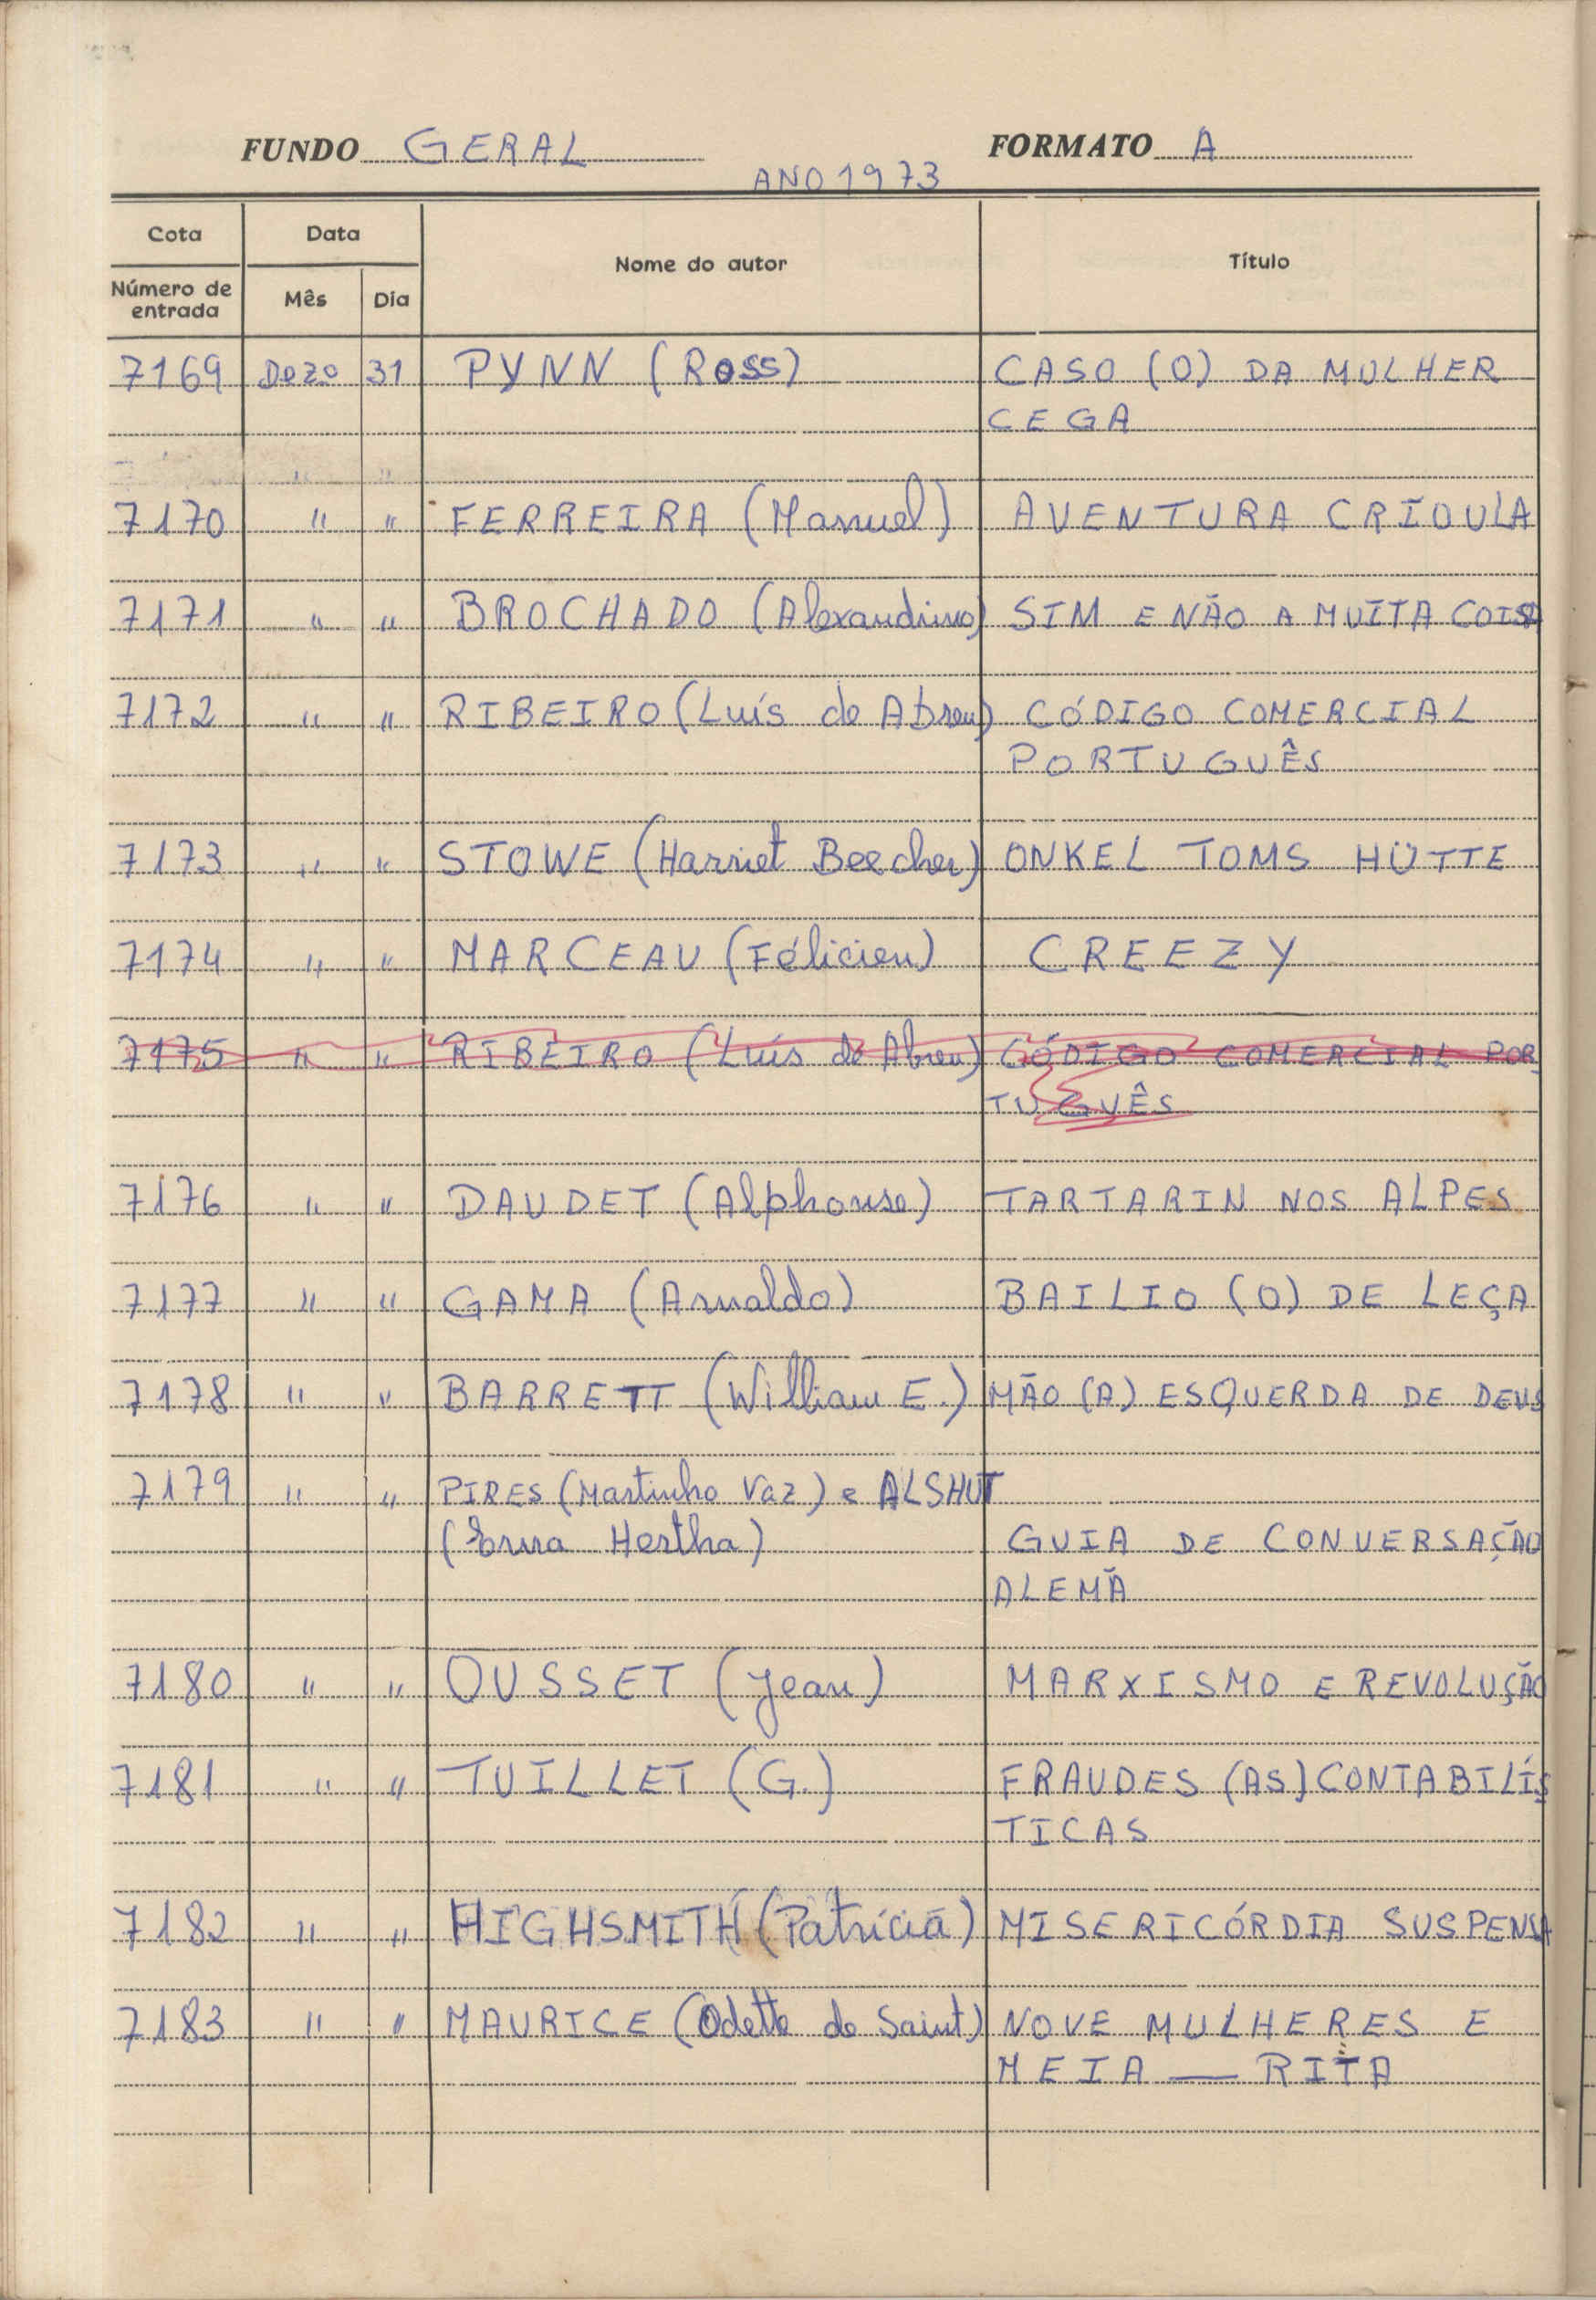 FUNDO GERAL FORMATO A
ANO 1973
Cota Data Nome do autor Título
Número de entrada Mês Dia
7169 Dezo 31 PYNN (Ross) CASO (O) DA MULHER
CEGA
" "
7170 " " FERREIRA (Manuel) AVENTURA CRIOULA
7171 " " BROCHADO (Alexandrino) SIM E NÃO A MUITA COISA
7172 " " RIBEIRO (Luís de Abreu) CÓDIGO COMERCIAL
PORTUGUÊS
7173 " " STOWE (Harriet Beecher) ONKEL TOMS HÜTTE
7174 " " MARCEAU (Félicien) CREEZY
7175 " " RIBEIRO (Luís de Abreu) CÓDIGO COMERCIAL POR
TUGUÊS
7176 " " DAUDET (Alphonse) TARTARIN NOS ALPES
7177 " " GAMA (Arnaldo) BAILIO (O) DE LEÇA
7178 " " BARRETT (William E.) MÃO (A) ESQUERDA DE DEUS
7179 " " PIRES (Martinho Vaz) e ALSHUT
(Erna Hertha) GUIA DE CONVERSAÇÃO
ALEMÃ
7180 " " OUSSET (Jean) MARXISMO E REVOLUÇÃO
7181 " " TUILLET (G.) FRAUDES (AS) CONTABILÍS
TICAS
7182 " " HIGHSMITH (Patrícia) MISERICÓRDIA SUSPENSA
7183 " " MAURICE (Odette de Saint) NOVE MULHERES E
MEIA — RITA